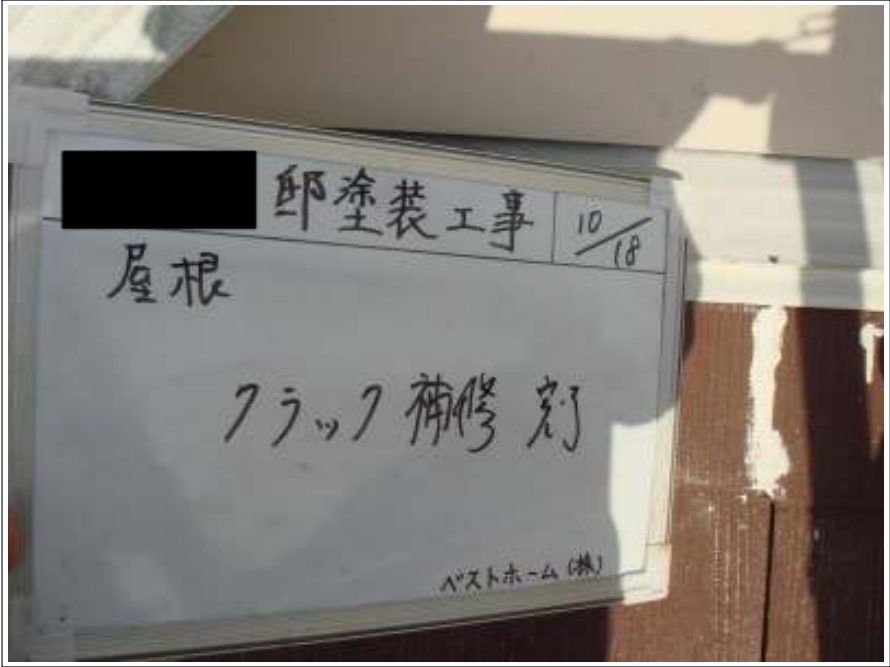 邸塗装工事 10/18
屋根
クラック補修 完了
ベストホーム(株)